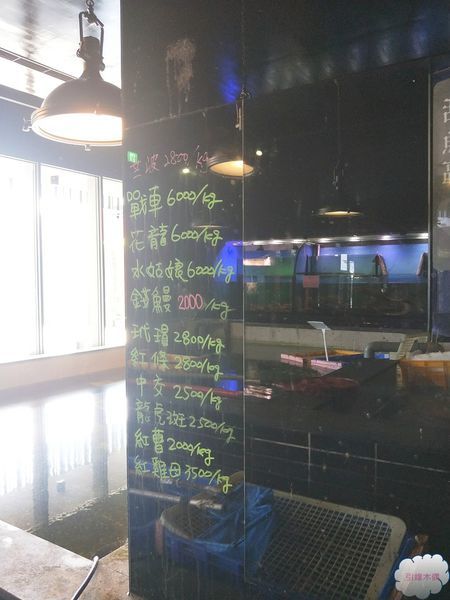 波 2800/kg
戰車 6000/kg
花龍 6000/kg
水姑娘 6000/kg
錢鰻 2000/kg
玳瑁 2800/kg
紅條 2800/kg
中交 2500/kg
龍虎斑 2500/kg
紅曹 2000/kg
紅雞母 3500/kg
引線木偶